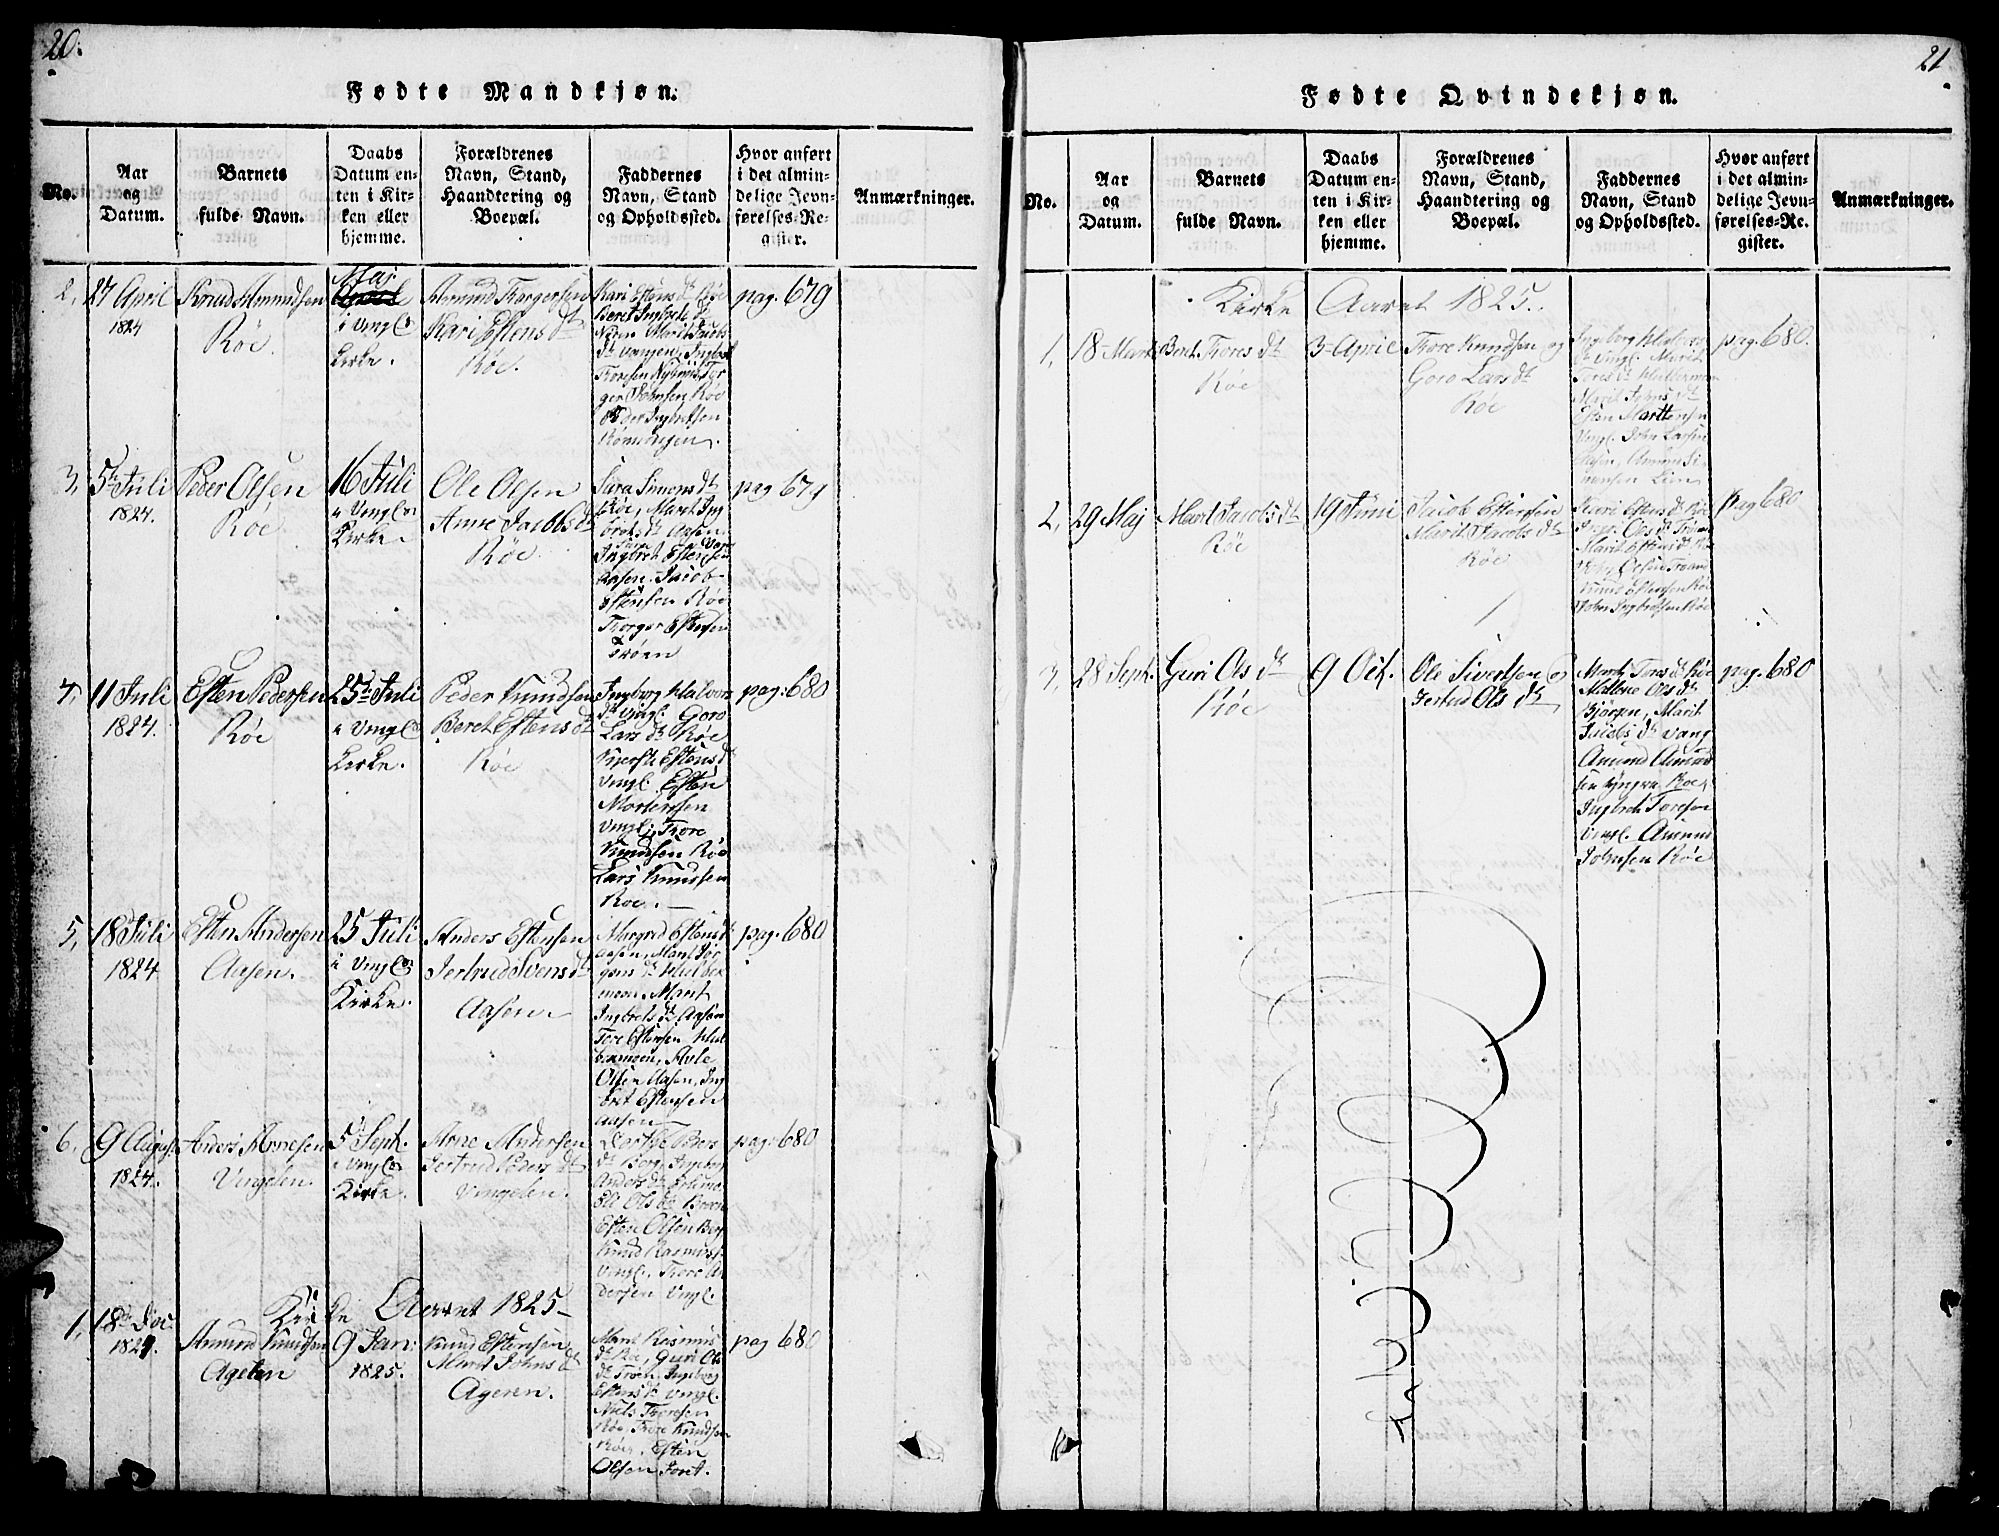 20.
Fødte Mandkjøn.
No.
Aar
og
Datum.
Barnets
fulde Navn.
Daabs
Datum en-
ten i Kir-
ken eller
hjemme.
Forældrenes
Navn, Stand,
Haandtering og
Boepæl.
Faddernes
Navn, Stand
og Opholdssted.
Hvor anført
i det almin-
delige Jevn-
førelses-Re-
gister.
Anmærkninger.
2,
27 April
1824
Knud Amundsen
Røe.
Maj
i Vingl.
Kirke.
Amund Torgersen
Kari Estens dt
Røe.
Kari Estens dt Røe
Beret Ingbrts dt
Marit Jacobs
dt Vangen, Ingbret
Toresen
ger Johnsen Røe
Peder Ingbretsen
pag. 679
3,
5te Juli
1824.
Peder Olsen
Røe
16 Juli
i Vingl.
Kirke.
Ole Olsen
Anne Jacobs dt
Røe
Sara Simons dt
Røe, Marit Ing
brets dt Aasen
Ingbret Estensen
Aasen. Jacob
Estensen Røe
Torger Estensen
Trøen
pag 679
4,
11 Juli
1824.
Esten Pedersen
Røe
25de Juli
i Vingl.
Kirke.
Peder Knudsen
Beret Estens dt
Røe
Ingborg Halvors
dt Vingl. Goro
Lars dt Røe
Kjersti Estens dt
Vingl. Esten
Mortensen
Vingl, Tore
Knudsen Røe
Lars Knudsen
Røe.
pag: 680
5,
18de Juli
1824
Esten Andersen
Aasen.
25 Juli
i Vingl.
Kirke.
Anders Estensen
Jertrud Svens dt
Aasen.
Margred Estens dt
Aasen, Marit Tor
gers dt Hulber
moen. Marit
Ingbrets dt Aasen
Tore Estensen Hul
bermoen, Avle
Olsen Aasen, Ing
bret Estensen
Aasen
pag. 680
6,
9 August
1824.
Anders Arnesen
Vingelen.
5 Sept.
i Vingl.
Kirke.
Arne Andersen
Jertrud Peders dt
Vingelen.
dt Berg, Ingeborg
Anders dt
Ele Ols dt
Esten Olsen Berg
Knud Rasmuss.
Vingl., Tore An
dersen Vingl.
pag. 680
Kirke Aaret 1825
1,
18de Dec.
1824.
Amund Knudsen
Ageren
9 Jan:
1825.
Knud Estensen
Marit Johns dt
Ageren.
Marit Rasmus
dt Røe, Guri Ols
dt Trøen, Ingeborg
Estens dt Vingl.
Niels Toresen
Røe, Tore Knudsen
Røe, Esten
Olsen
pag 680
21
Fødte Qvindekjøn.
No.
Aar
og
Datum.
Barnets
fulde Navn.
Daabs
Datum en-
ten i Kir-
ken eller
hjemme.
Forældrenes
Navn, Stand,
Haandtering og
Boepæl.
Faddernes
Navn, Stand
og Opholdssted.
Hvor anført
i det almin-
delige Jevn-
førelses-Re-
gister.
Anmærkninger.
Kirke Aaret 1825.
1,
18 Marts
Beret Tores dt
Røe
3 April
Tore Knudsen og
Goro Lars dt
Røe
Ingeborg Halvors
dt Vingl. Marit
Tores dt Hulbermoen
Marit Johns dt
Esten Mortensen
Vingl. John Larsen
Aasen, Amund Si
monsen
pag. 680.
2,
29 Maj
Marit Jacobs dt
Røe
19 Juni
Jacob Estensen
Marit Jacobs dt
Røe
Kari Estens dt Røe
Ols dt Trøen
Marit Estens dt
Knud Estensen Røe
John Ingbretsen Røe
Pag 680
3,
28 Sept.
Guri Ols dt
Røe
9 Oct.
Ole Sivertsen og
Jertrud Ols dt
Marit Tores dt Røe
Malene Ols dt
Bjørgen, Marit
Jacobs dt Vang
Amund Amund
sen Røe,
Ingbret Toresen
Vingl. Amund
Johnsen Røe
pag. 680